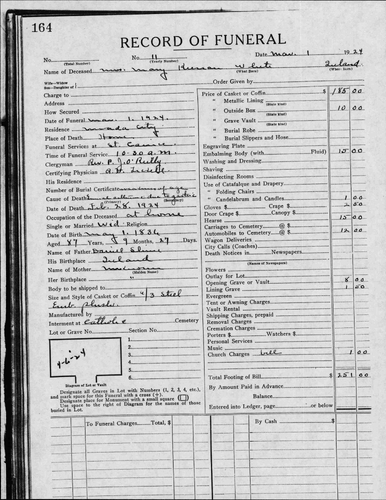 164
RECORD OF FUNERAL
No. No. 11 Date Mar. 1 1924
(Total Number) (Yearly Number)
Name of Deceased Mrs. Mary White Ireland
(What Color) (Where Born)
Wife—Widow
Son—Daughter of
Charge to
Address
Order Given by
How Secured
Date of Funeral Mar. 1, 1924.
Residence City
Place of Death Home
Funeral Services at St.
Time of Funeral Service 10:30 A.M.
Clergyman Rev. P. J. O'Reilly
Certifying Physician
His Residence
Number of Burial Certificate
Cause of Death
Date of Death Feb. 28, 1924
Occupation of the Deceased at home
Single or Married Wid. Religion
Date of Birth 1, 1836
Aged 87 Years, 9 Months, 27 Days
Name of Father Daniel
His Birthplace Ireland
Name of Mother Unknown
(Maiden Name)
Her Birthplace "
Body to be shipped to
Size and Style of Casket or Coffin 6/3 Steel
Plush
Manufactured by
Interment at Catholic Cemetery
Lot or Grave No. Section No.
1.
2.
3.
4.
5.
Diagram of Lot or Vault
Designate all Graves in Lot with Numbers (1, 2, 3, 4, etc.), and mark space for this Funeral with a cross (+).
Designate place for Monument with a small square
Use space to the right of Diagram for the names of those buried in Lot.
Price of Casket or Coffin $ 185 00
" Metallic Lining
(State Kind)
" Outside Box 10 00
(State Kind)
" Grave Vault
(State Kind)
" Burial Robe
" Burial Slippers and Hose
Engraving Plate
Embalming Body (with Fluid) 15 00
Washing and Dressing
Shaving
Disinfecting Rooms
Use of Catafalque and Drapery
" Folding Chairs
" Candelabrum and Candles 1 00
Gloves $ Crape $ 2 50
Door Crape $ Canopy
Hearse 15 00
Carriages to Cemetery @ $
Automobiles to Cemetery @ $ 12 00
Wagon Deliveries
City Calls (Coaches)
Death Notices in Newspapers
(Names of Newspapers)
Flowers
Outlay for Lot
Opening Grave or Vault 8 00
Lining Grave 1 50
Evergreen
Tent or Awning Charges
Vault Rental
Shipping Charges, prepaid
Removal Charges
Cremation Charges
Porters $ Watchers $
Personal Services
Music
Church Charges bell 1 00
Total Footing of Bill $ 251 00
By Amount Paid in Advance
Balance
Entered into Ledger, page or below
To Funeral Charges Total, $
By Cash $